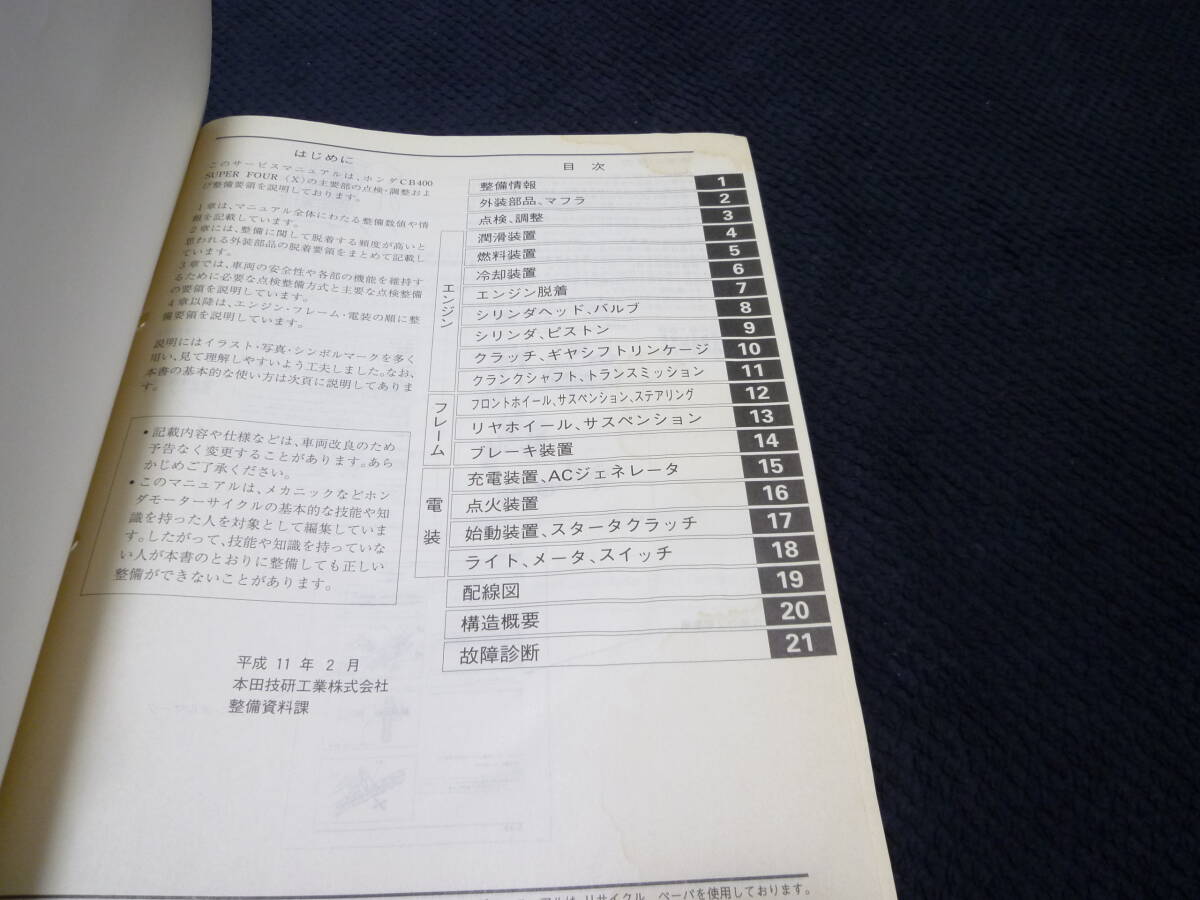 はじめに
このサービスマニュアルは、ホンダCB400
SUPER FOUR (X)の主要部の点検・調整およ
び整備要領を説明しております。
1章は、マニュアル全体にわたる整備数値や情
報を記載しています。
2章には、整備に関して脱着する頻度が高いと
思われる外装部品の脱着要領をまとめて記載し
ています。
3章では、車両の安全性や各部の機能を維持す
るために必要な点検整備方式と主要な点検整備
の要領を説明しています。
4章以降は、エンジン・フレーム・電装の順に整
備要領を説明しています。
説明にはイラスト・写真・シンボルマークを多く
用い、見て理解しやすいよう工夫しました。なお、
本書の基本的な使い方は次頁に説明してありま
す。
・記載内容や仕様などは、車両改良のため
予告なく変更することがあります。あら
かじめご了承ください。
・このマニュアルは、メカニックなどホン
ダモーターサイクルの基本的な技能や知
識を持った人を対象として編集していま
す。したがって、技能や知識を持っていな
い人が本書のとおりに整備しても正しい
整備ができないことがあります。
平成 11 年 2 月
本田技研工業株式会社
整備資料課
目次
整備情報 1
外装部品、マフラ 2
点検、調整 3
エンジン
潤滑装置 4
燃料装置 5
冷却装置 6
エンジン脱着 7
シリンダヘッド、バルブ 8
シリンダ、ピストン 9
クラッチ、ギヤシフトリンケージ 10
クランクシャフト、トランスミッション 11
フレーム
フロントホイール、サスペンション、ステアリング 12
リヤホイール、サスペンション 13
ブレーキ装置 14
電装
充電装置、ACジェネレータ 15
点火装置 16
始動装置、スタータクラッチ 17
ライト、メータ、スイッチ 18
配線図 19
構造概要 20
故障診断 21
アルは、リサイクル ペーパを使用しております。